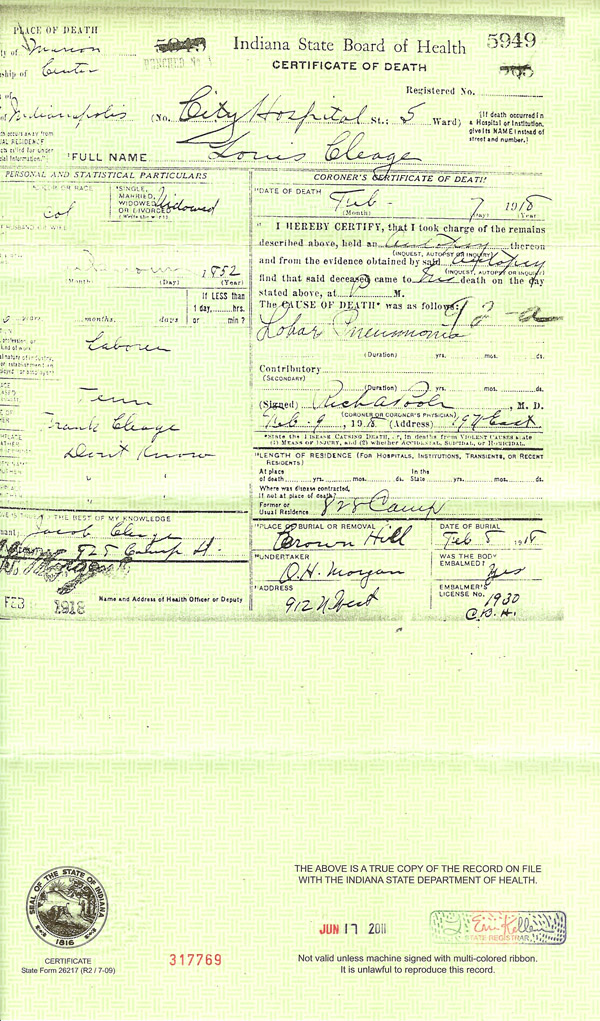 PLACE OF DEATH
ty of Marion
ship of Center
of
of Indianapolis
5949
Indiana State Board of Health
5949
CERTIFICATE OF DEATH
Registered No.
(No. City Hospital St.; 5 Ward)
(If death occurred in
a Hospital or Institution,
give its NAME instead of
street and number.)
FULL NAME Louis Cleage
PERSONAL AND STATISTICAL PARTICULARS
OR RACE
col
SINGLE,
MARRIED,
WIDOWED
OR DIVORCED
(Write the word)
Widowed
1852
(Month) (Day) (Year)
If LESS than
1 day,.....hrs.
or min?
years months. days
Laborer
Tenn
Frank Cleage
Don't Know
" "
THE BEST OF MY KNOWLEDGE
Jacob Cleage
828 Camp St.
FEB 1918
Name and Address of Health Officer or Deputy
CORONER'S CERTIFICATE OF DEATH
DATE OF DEATH
Feb - 7 1918
(Month) (Day) (Year)
I HEREBY CERTIFY, that I took charge of the remains
described above, held an autopsy thereon
(INQUEST, AUTOPSY OR INQUIRY)
and from the evidence obtained by said autopsy
(INQUEST, AUTOPSY OR INQUIRY)
find that said deceased came to his death on the day
stated above, at P M.
The CAUSE OF DEATH* was as follows:
Lobar Pneumonia
(Duration) yrs. mos. ds.
Contributory
(SECONDARY)
(Duration) yrs. mos. ds.
(Signed) , M. D.
(CORONER OR CORONER'S PHYSICIAN)
Feb - 9, 1918 (Address)
*State the DISEASE CAUSING DEATH, or, in deaths from VIOLENT CAUSES state
(1) MEANS OF INJURY, and (2) whether ACCIDENTAL, SUICIDAL, or HOMICIDAL.
LENGTH OF RESIDENCE (FOR HOSPITALS, INSTITUTIONS, TRANSIENTS, OR RECENT
RESIDENTS)
At place
of death yrs. mos. ds.
In the
State yrs. mos. ds.
Where was disease contracted,
if not at place of death?
Former or
Usual Residence 828 Camp
PLACE OF BURIAL OR REMOVAL
Crown Hill
DATE OF BURIAL
Feb 1918
UNDERTAKER
O.H. Morgan
WAS THE BODY
EMBALMED?
Yes
ADDRESS
912 N. West
EMBALMER'S
LICENSE No. 1930
C.B.H.
SEAL OF THE STATE OF INDIANA
1816
CERTIFICATE
State Form 26217 (R2 / 7-09)
317769
THE ABOVE IS A TRUE COPY OF THE RECORD ON FILE
WITH THE INDIANA STATE DEPARTMENT OF HEALTH.
JUN 17 2011
STATE REGISTRAR
Not valid unless machine signed with multi-colored ribbon.
It is unlawful to reproduce this record.